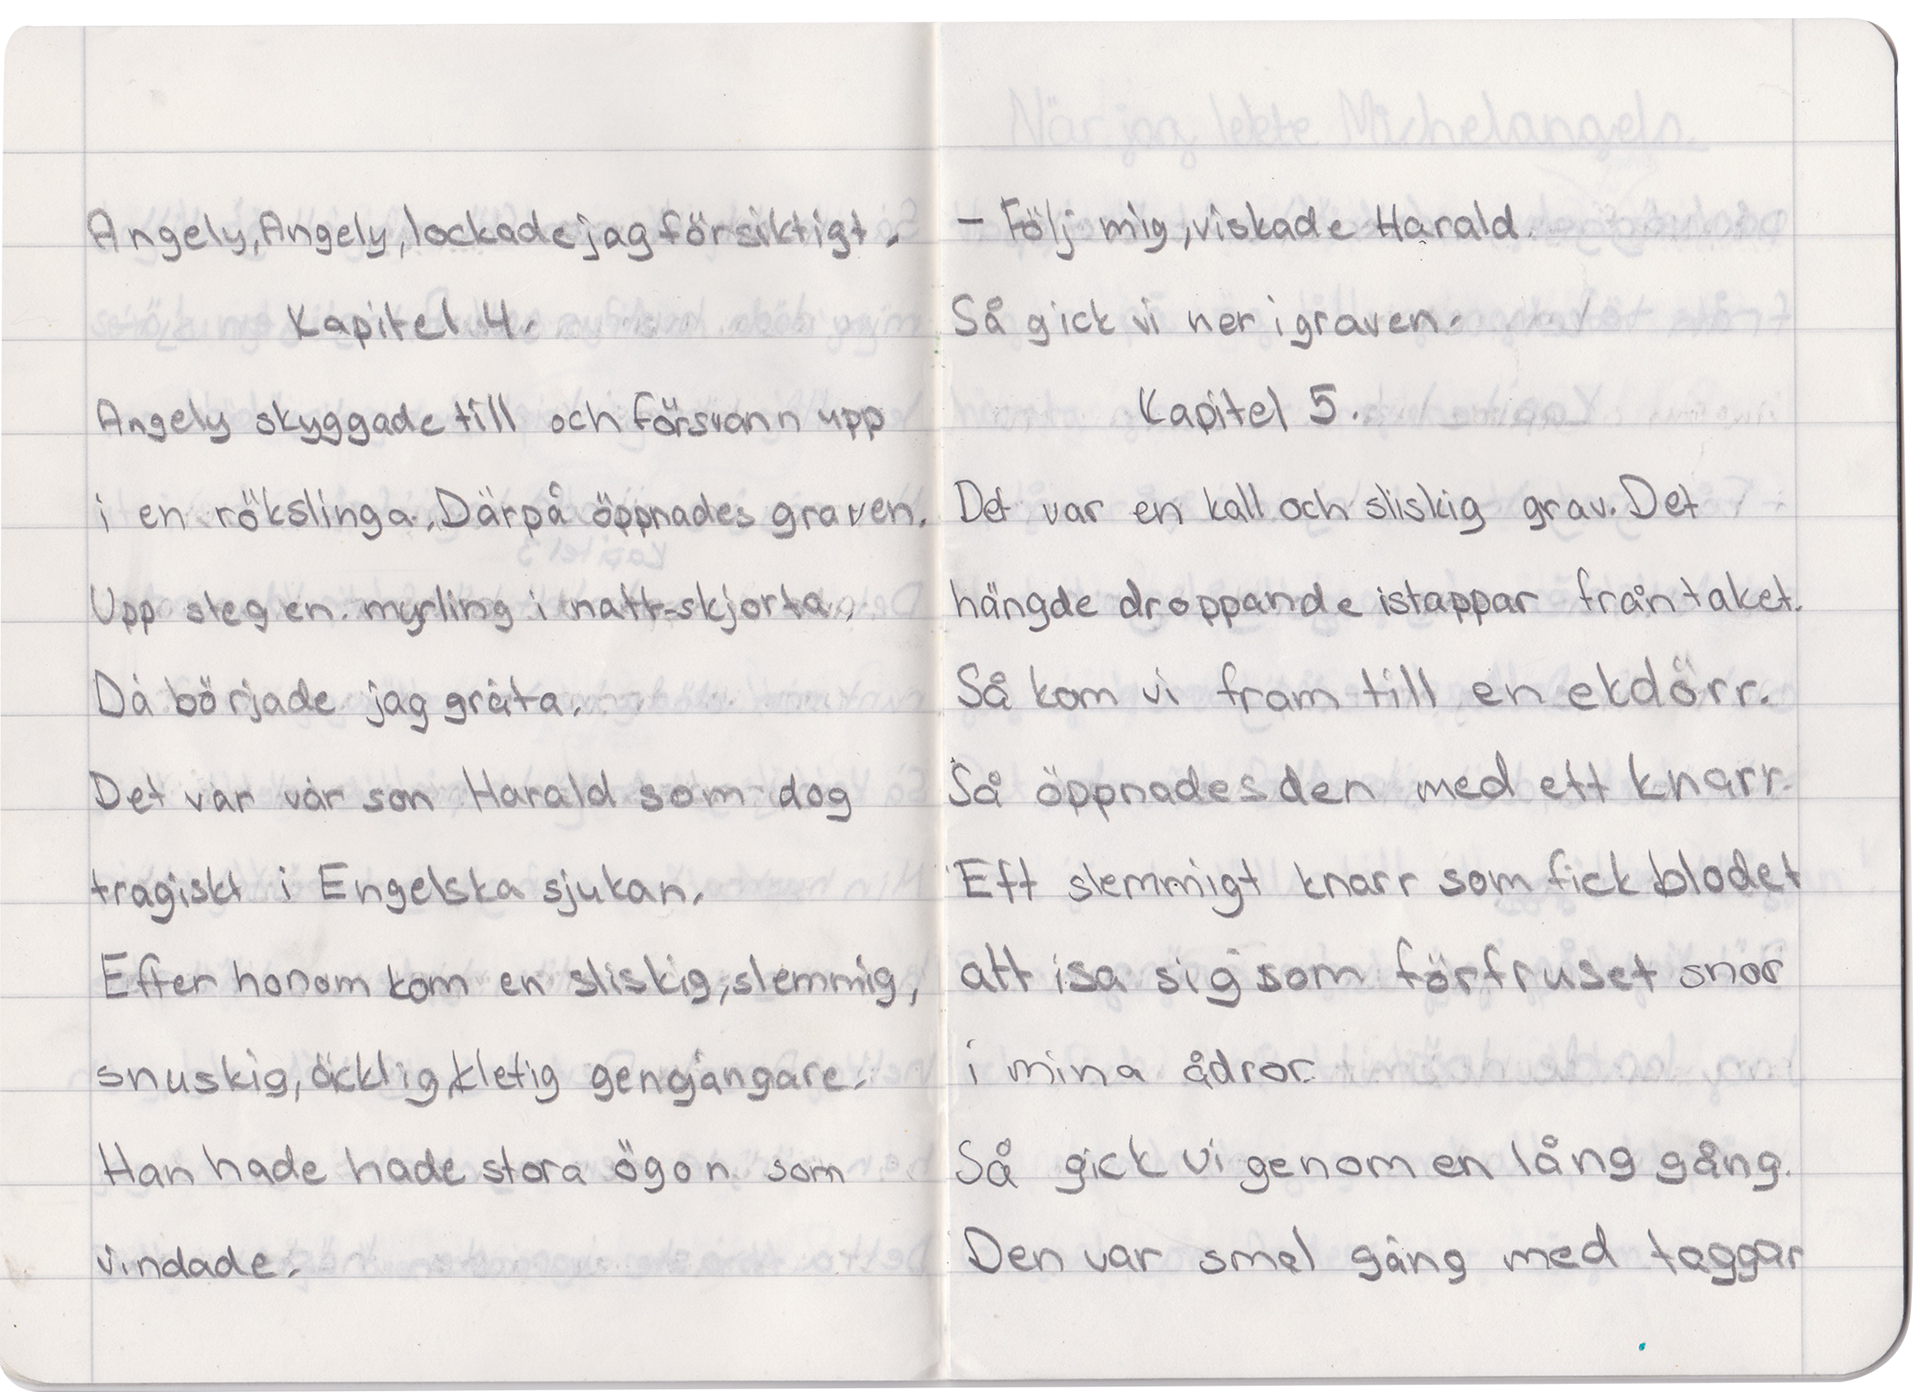 Angely, Angely, lockade jag försiktigt.
Kapitel 4.
Angely skyggade till och försvann upp
i en rökslinga. Därpå öppnades graven.
Upp steg en myrling i natt-skjorta.
Då började jag gråta.
Det var vår son Harald som dog
tragiskt i Engelska sjukan.
Efter honom kom en sliskig, slemmig,
snuskig, äcklig, kletig gengångare.
Han hade hade stora ögon som
vindade.
– Följ mig, viskade Harald.
Så gick vi ner i graven.
Kapitel 5.
Det var en kall och sliskig grav. Det
hängde droppande istappar från taket.
Så kom vi fram till en ekdörr.
Så öppnades den med ett knarr.
Ett slemmigt knarr som fick blodet
att isa sig som förfruset snor
i mina ådror.
Så gick vi genom en lång gång.
Den var smal gång med taggar